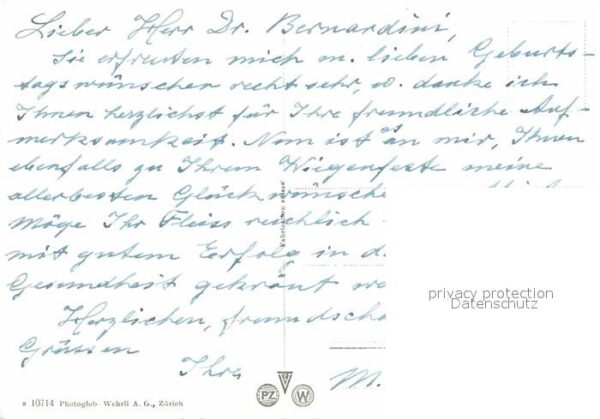 Lieber Herr Dr. Bernardini,
Sie erfreuten mich m. lieben Geburts-
tagswünschen recht sehr, u. danke ich
Ihnen herzlichst für Ihre freundliche Auf-
merksamkeit. Nun ist es an mir, Ihnen
ebenfalls zu Ihrem Wiegenfeste meine
allerbesten Glückwünsche
Möge Ihr Fleiss reichlich
mit gutem Erfolg in d.
Gesundheit gekrönt we
Herzlichen, freundscha
Grüssen
Ihre M.
Fabrication suisse
privacy protection
Datenschutz
10714 Photoglob-Wehrli A. G., Zürich
PZ W